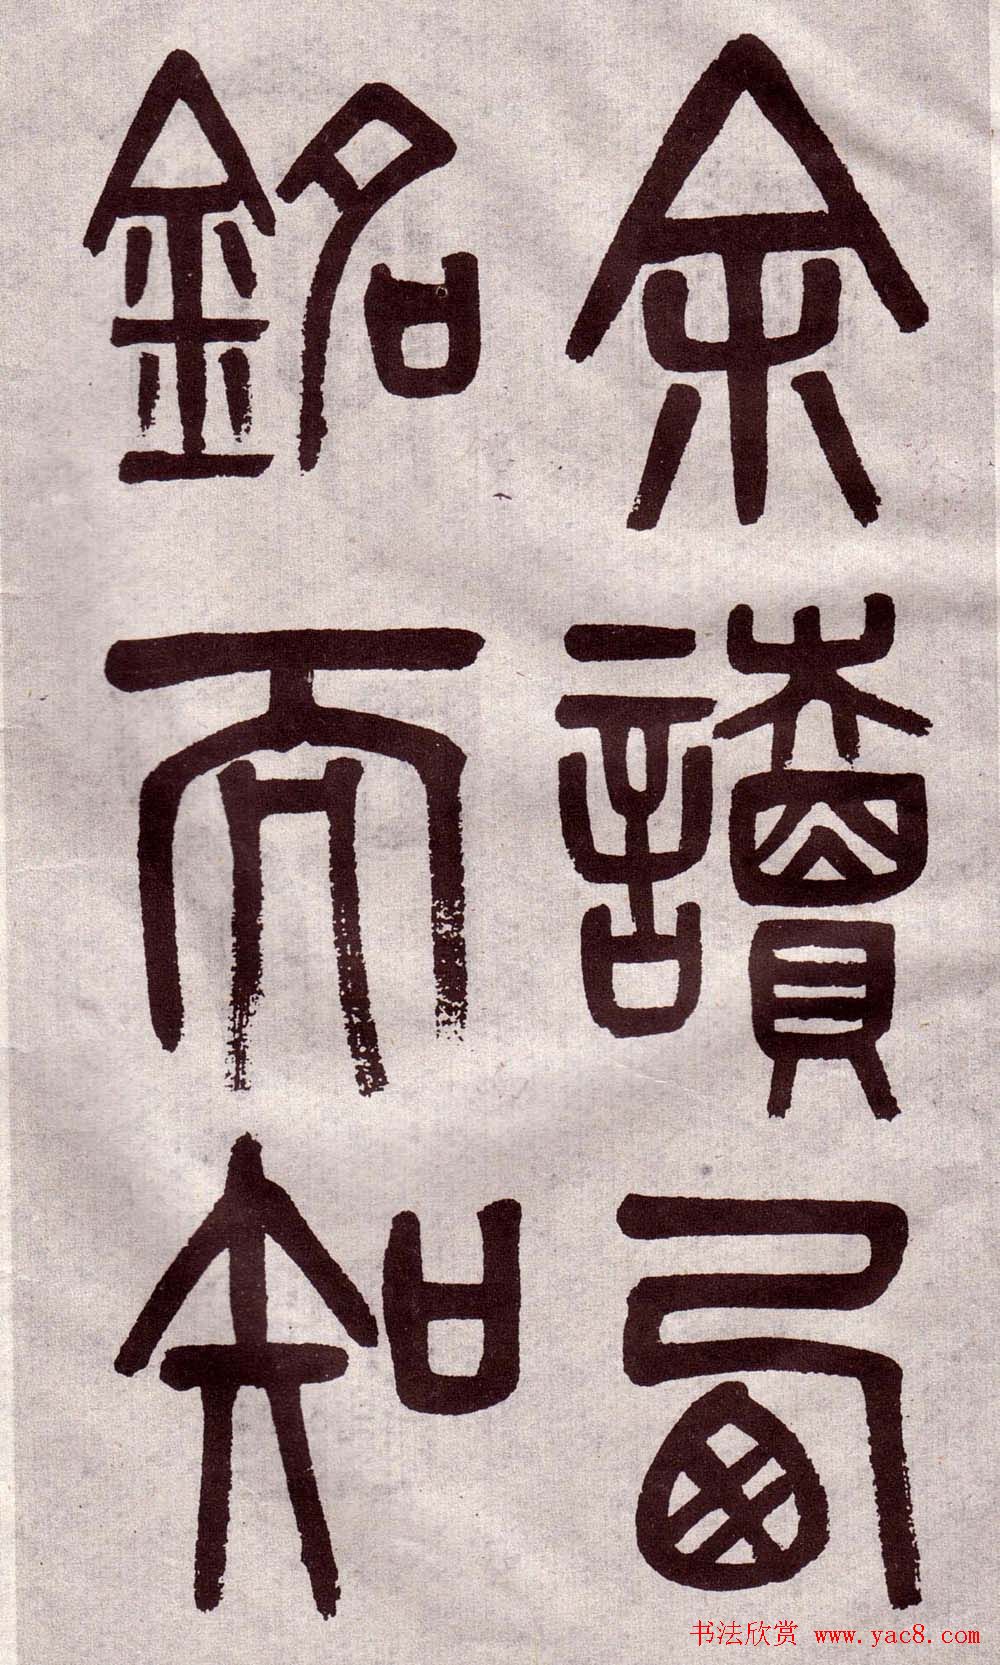 余讀西
銘而知
书法欣赏 www.yac8.com